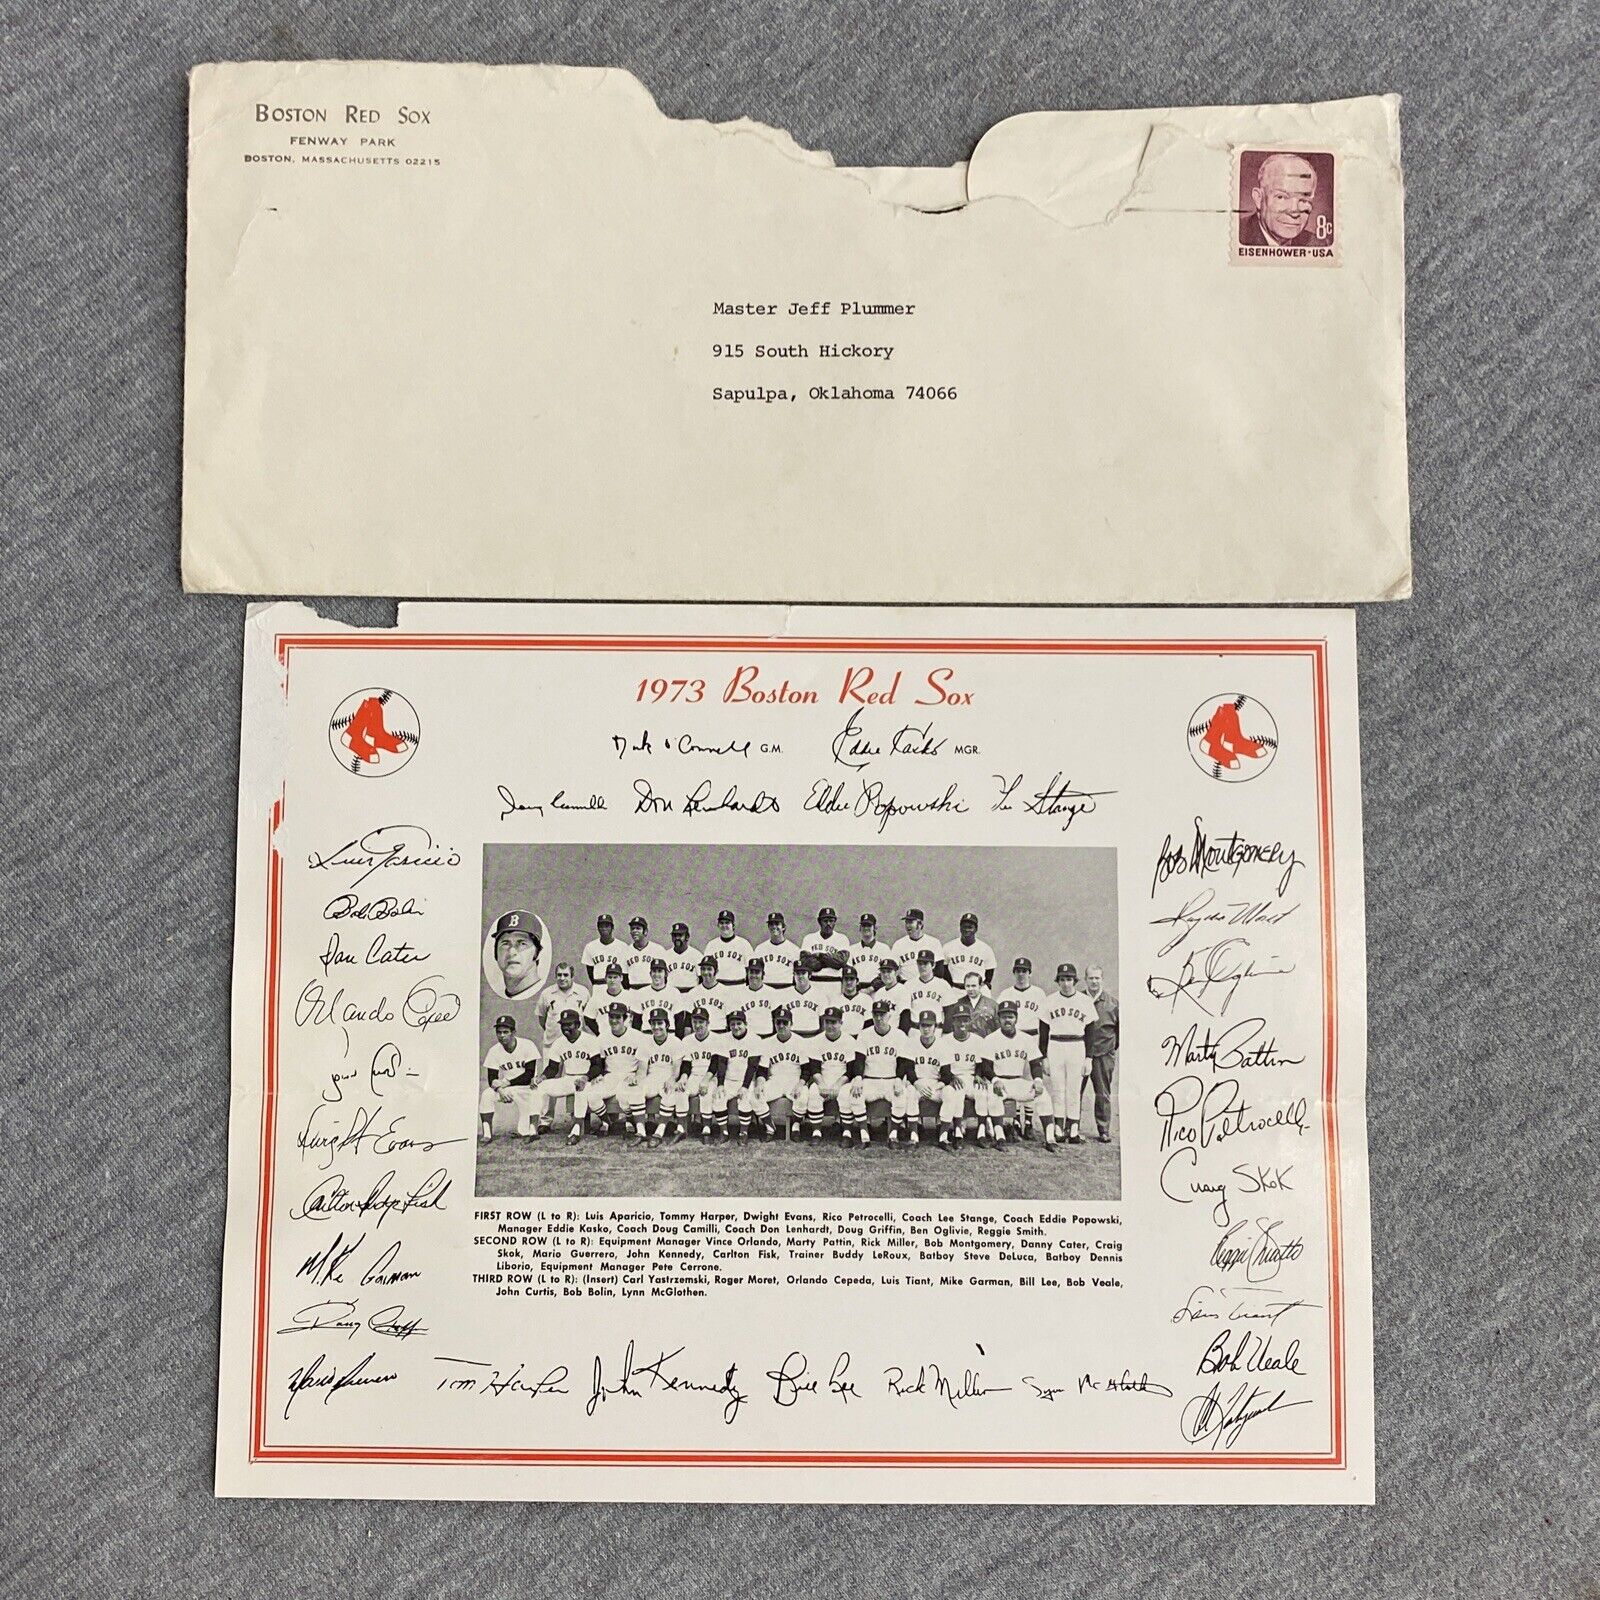 BOSTON RED SOX
FENWAY PARK
BOSTON, MASSACHUSETTS 02215
8c
EISENHOWER·USA
Master Jeff Plummer
915 South Hickory
Sapulpa, Oklahoma 74066
1973 Boston Red Sox
Dick O'Connell G.M. Eddie Kasko MGR.
Doug Camilli Don Lenhardt Eddie Popowski Lee Stange
Luis Aparicio
Bob Bolin
Dan Cater
Orlando Cepeda
John Curtis
Dwight Evans
Carlton Fisk
Mike Garman
Doug Griffin
Mario Guerrero
Tom Harper
John Kennedy
Bill Lee
Rick Miller
Lynn McGlothen
Bob Montgomery
Rogelio Moret
Ben Oglivie
Marty Pattin
Rico Petrocelli
Craig Skok
Reggie Smith
Luis Tiant
Bob Veale
Carl Yastrzemski
B
RED SOX
FIRST ROW (L to R): Luis Aparicio, Tommy Harper, Dwight Evans, Rico Petrocelli, Coach Lee Stange, Coach Eddie Popowski,
Manager Eddie Kasko, Coach Doug Camilli, Coach Don Lenhardt, Doug Griffin, Ben Oglivie, Reggie Smith.
SECOND ROW (L to R): Equipment Manager Vince Orlando, Marty Pattin, Rick Miller, Bob Montgomery, Danny Cater, Craig
Skok, Mario Guerrero, John Kennedy, Carlton Fisk, Trainer Buddy LeRoux, Batboy Steve DeLuca, Batboy Dennis
Liborio, Equipment Manager Pete Cerrone.
THIRD ROW (L to R): (Insert) Carl Yastrzemski, Roger Moret, Orlando Cepeda, Luis Tiant, Mike Garman, Bill Lee, Bob Veale,
John Curtis, Bob Bolin, Lynn McGlothen.